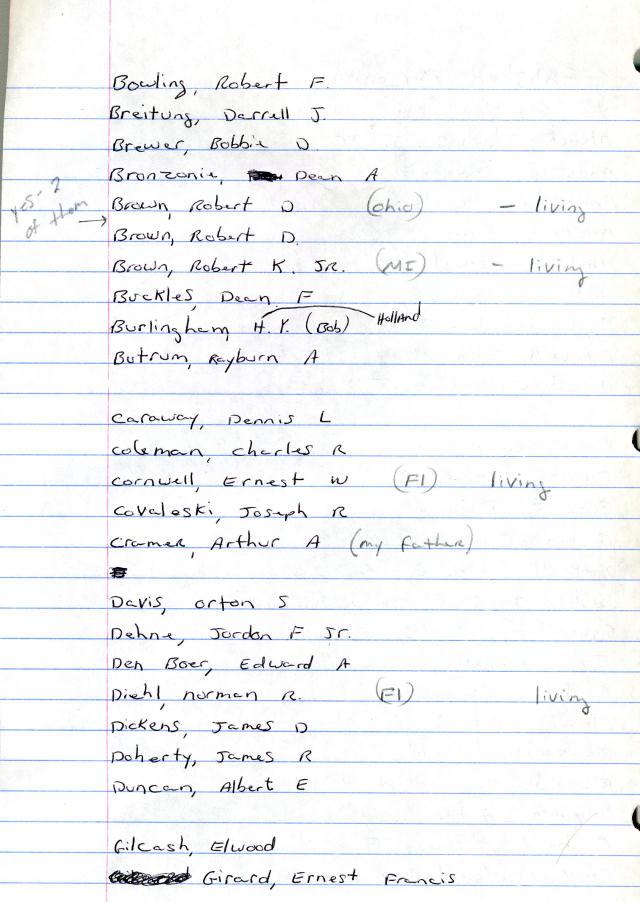 Bowling, Robert F.
Breitung, Darrell J.
Brewer, Bobbie D
Bronzonie, Dean A
yes - 2 of them → Brown, Robert D (Ohio) - living
Brown, Robert D.
Brown, Robert K. JR. (MI) - living
Buckles, Dean F
Burlingham H. Y. (Bob) Holland
Butrum, Rayburn A
Caraway, Dennis L
Coleman, Charles R
Cornwell, Ernest W (Fl) living
Covaleski, Joseph R
Cramer, Arthur A (my Father)
Davis, Orton S
Dehne, Jordon F Jr.
Den Boer, Edward A
Diehl, Norman R. (Fl) living
Dickens, James D
Doherty, James R
Duncan, Albert E
Gilcash, Elwood
Girard, Ernest Francis